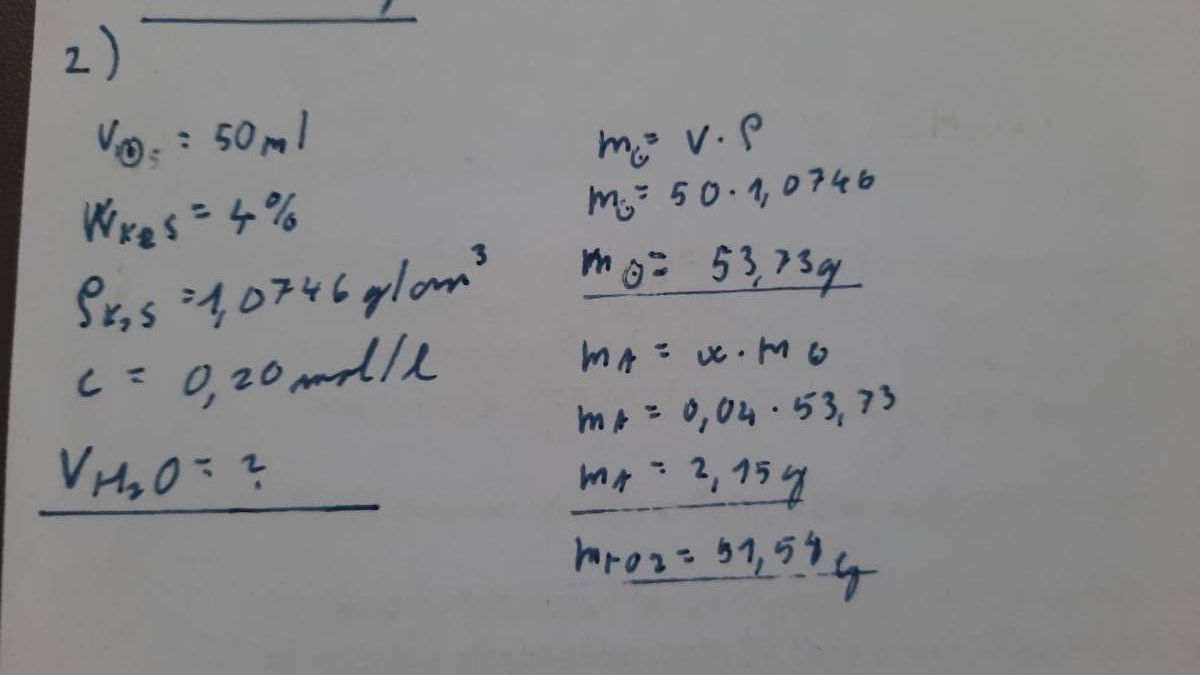 2)
V⊙ = 50 ml
W K2S = 4%
ρ K2S = 1,0746 g/cm³
c = 0,20 mol/l
V H2O = ?
m⊙ = V · ρ
m⊙ = 50 · 1,0746
m⊙ = 53,73g
mA = w · m⊙
mA = 0,04 · 53,73
mA = 2,15g
= 51,58 g